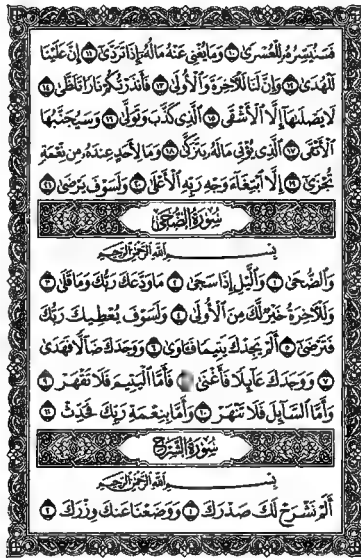 فَسَنُيَسِّرُهُۥ لِلْعُسْرَىٰ ١٠ وَمَا يُغْنِى عَنْهُ مَالُهُۥٓ إِذَا تَرَدَّىٰٓ ١١ إِنَّ عَلَيْنَا
لَلْهُدَىٰ ١٢ وَإِنَّ لَنَا لَلْـَٔاخِرَةَ وَٱلْأُولَىٰ ١٣ فَأَنذَرْتُكُمْ نَارًا تَلَظَّىٰ ١٤
لَا يَصْلَىٰهَآ إِلَّا ٱلْأَشْقَى ١٥ ٱلَّذِى كَذَّبَ وَتَوَلَّىٰ ١٦ وَسَيُجَنَّبُهَا
ٱلْأَتْقَى ١٧ ٱلَّذِى يُؤْتِى مَالَهُۥ يَتَزَكَّىٰ ١٨ وَمَا لِأَحَدٍ عِندَهُۥ مِن نِّعْمَةٍ
تُجْزَىٰٓ ١٩ إِلَّا ٱبْتِغَآءَ وَجْهِ رَبِّهِ ٱلْأَعْلَىٰ ٢٠ وَلَسَوْفَ يَرْضَىٰ ٢١
سُورَةُ الضُّحَىٰ
بِسْمِ ٱللَّهِ ٱلرَّحْمَـٰنِ ٱلرَّحِيمِ
وَٱلضُّحَىٰ ١ وَٱلَّيْلِ إِذَا سَجَىٰ ٢ مَا وَدَّعَكَ رَبُّكَ وَمَا قَلَىٰ ٣
وَلَلْـَٔاخِرَةُ خَيْرٌ لَّكَ مِنَ ٱلْأُولَىٰ ٤ وَلَسَوْفَ يُعْطِيكَ رَبُّكَ
فَتَرْضَىٰٓ ٥ أَلَمْ يَجِدْكَ يَتِيمًا فَـَٔاوَىٰ ٦ وَوَجَدَكَ ضَآلًّا فَهَدَىٰ
٧ وَوَجَدَكَ عَآئِلًا فَأَغْنَىٰ فَأَمَّا ٱلْيَتِيمَ فَلَا تَقْهَرْ ٩
وَأَمَّا ٱلسَّآئِلَ فَلَا تَنْهَرْ ١٠ وَأَمَّا بِنِعْمَةِ رَبِّكَ فَحَدِّثْ ١١
سُورَةُ الشَّرْحِ
بِسْمِ ٱللَّهِ ٱلرَّحْمَـٰنِ ٱلرَّحِيمِ
أَلَمْ نَشْرَحْ لَكَ صَدْرَكَ ١ وَوَضَعْنَا عَنكَ وِزْرَكَ ٢